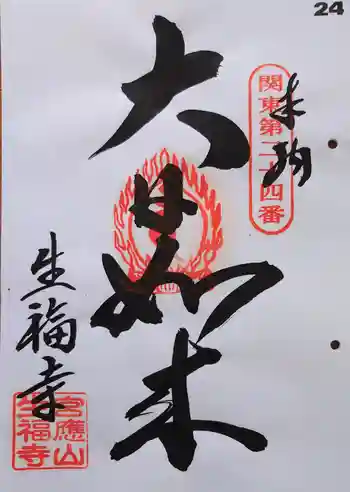 24
奉拝
関東第二十四番
大日如来
生福寺
生福寺